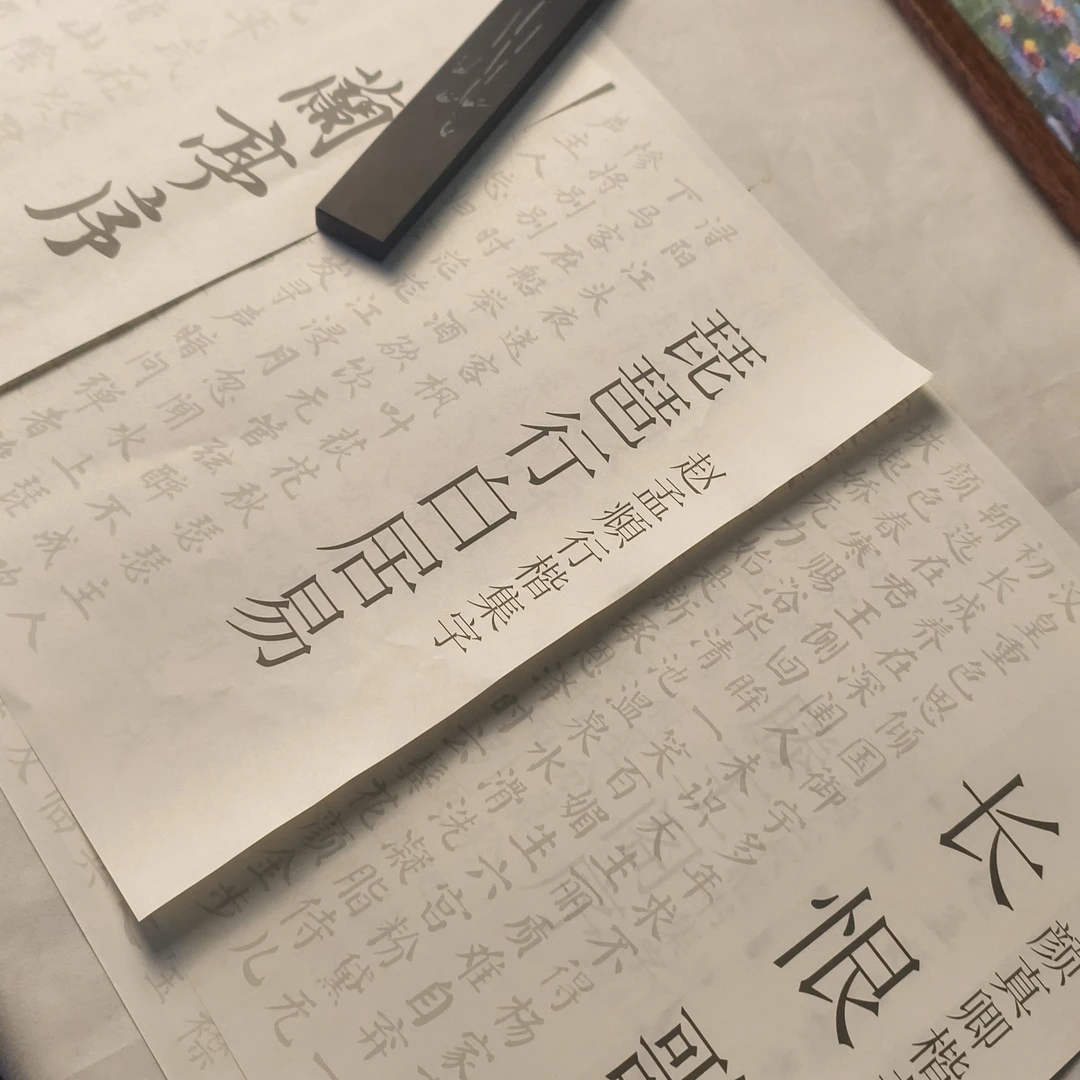 蘭亭序
琵琶行白居易
赵孟頫行楷集字
浔阳江头夜送客枫叶荻花秋瑟瑟主人
下马客在船举酒欲饮无管弦醉不成欢
惨将别别时茫茫江浸月忽闻水上琵
声主人忘发寻声暗问弹者
长恨
颜真卿楷
汉皇重色思倾国御宇多年求不得杨家
初长成养在深闺人未识天生丽质难自弃
朝选在君王侧回眸一笑百媚生六宫粉黛无
颜色春寒赐浴华清池温泉水滑洗凝脂侍儿
扶起娇无力始是新承恩泽时云鬓花颜金步